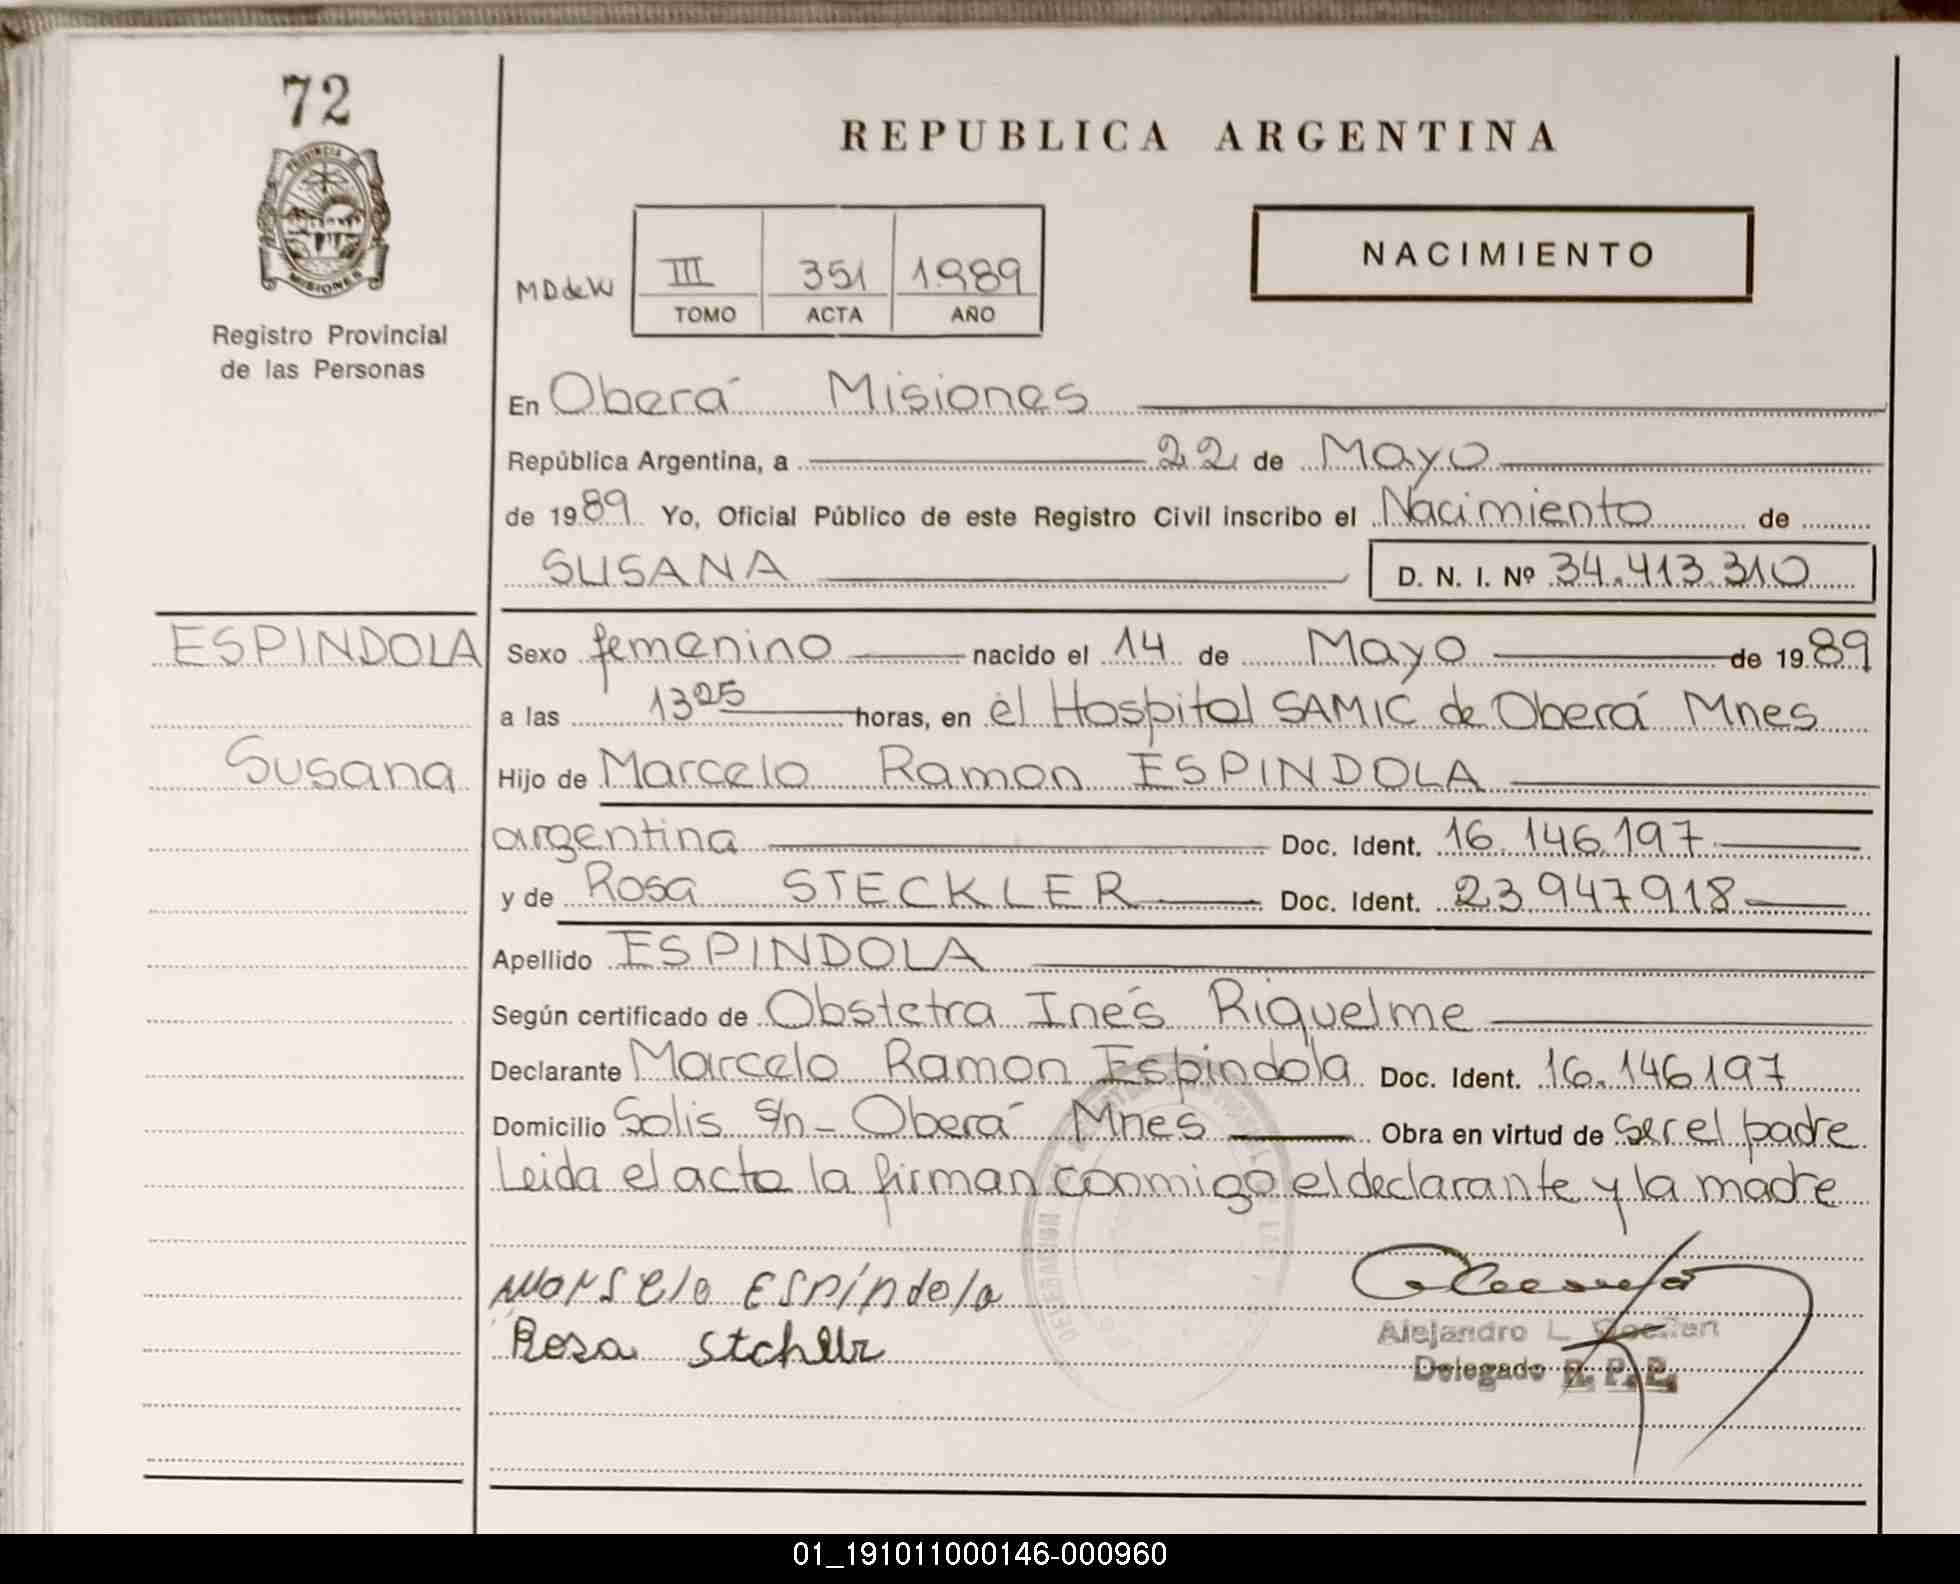 72
PROVINCIA
MISIONES
Registro Provincial
de las Personas
REPUBLICA ARGENTINA
NACIMIENTO
MD de W
III 351 1989
TOMO ACTA AÑO
En Oberá Misiones
República Argentina, a 22 de Mayo
de 1989 Yo, Oficial Público de este Registro Civil inscribo el Nacimiento de
SUSANA D. N. I. Nº 34.413.310
ESPINDOLA
Susana
Sexo femenino nacido el 14 de Mayo de 1989
a las 13 25 horas, en el Hospital SAMIC de Oberá Mnes
Hijo de Marcelo Ramon ESPINDOLA
argentina Doc. Ident. 16.146.197
y de Rosa STECKLER Doc. Ident. 23947918
Apellido ESPINDOLA
Según certificado de Obstetra Inés Riquelme
Declarante Marcelo Ramon Espindola Doc. Ident. 16.146197
Domicilio Solis s/n - Oberá Mnes Obra en virtud de ser el padre
Leida el acta la firman conmigo el declarante y la madre
Marselo Espíndola
Rosa Stchller
Alejandro L.
Delegado R. P. P.
DELEGACION
01_191011000146-000960